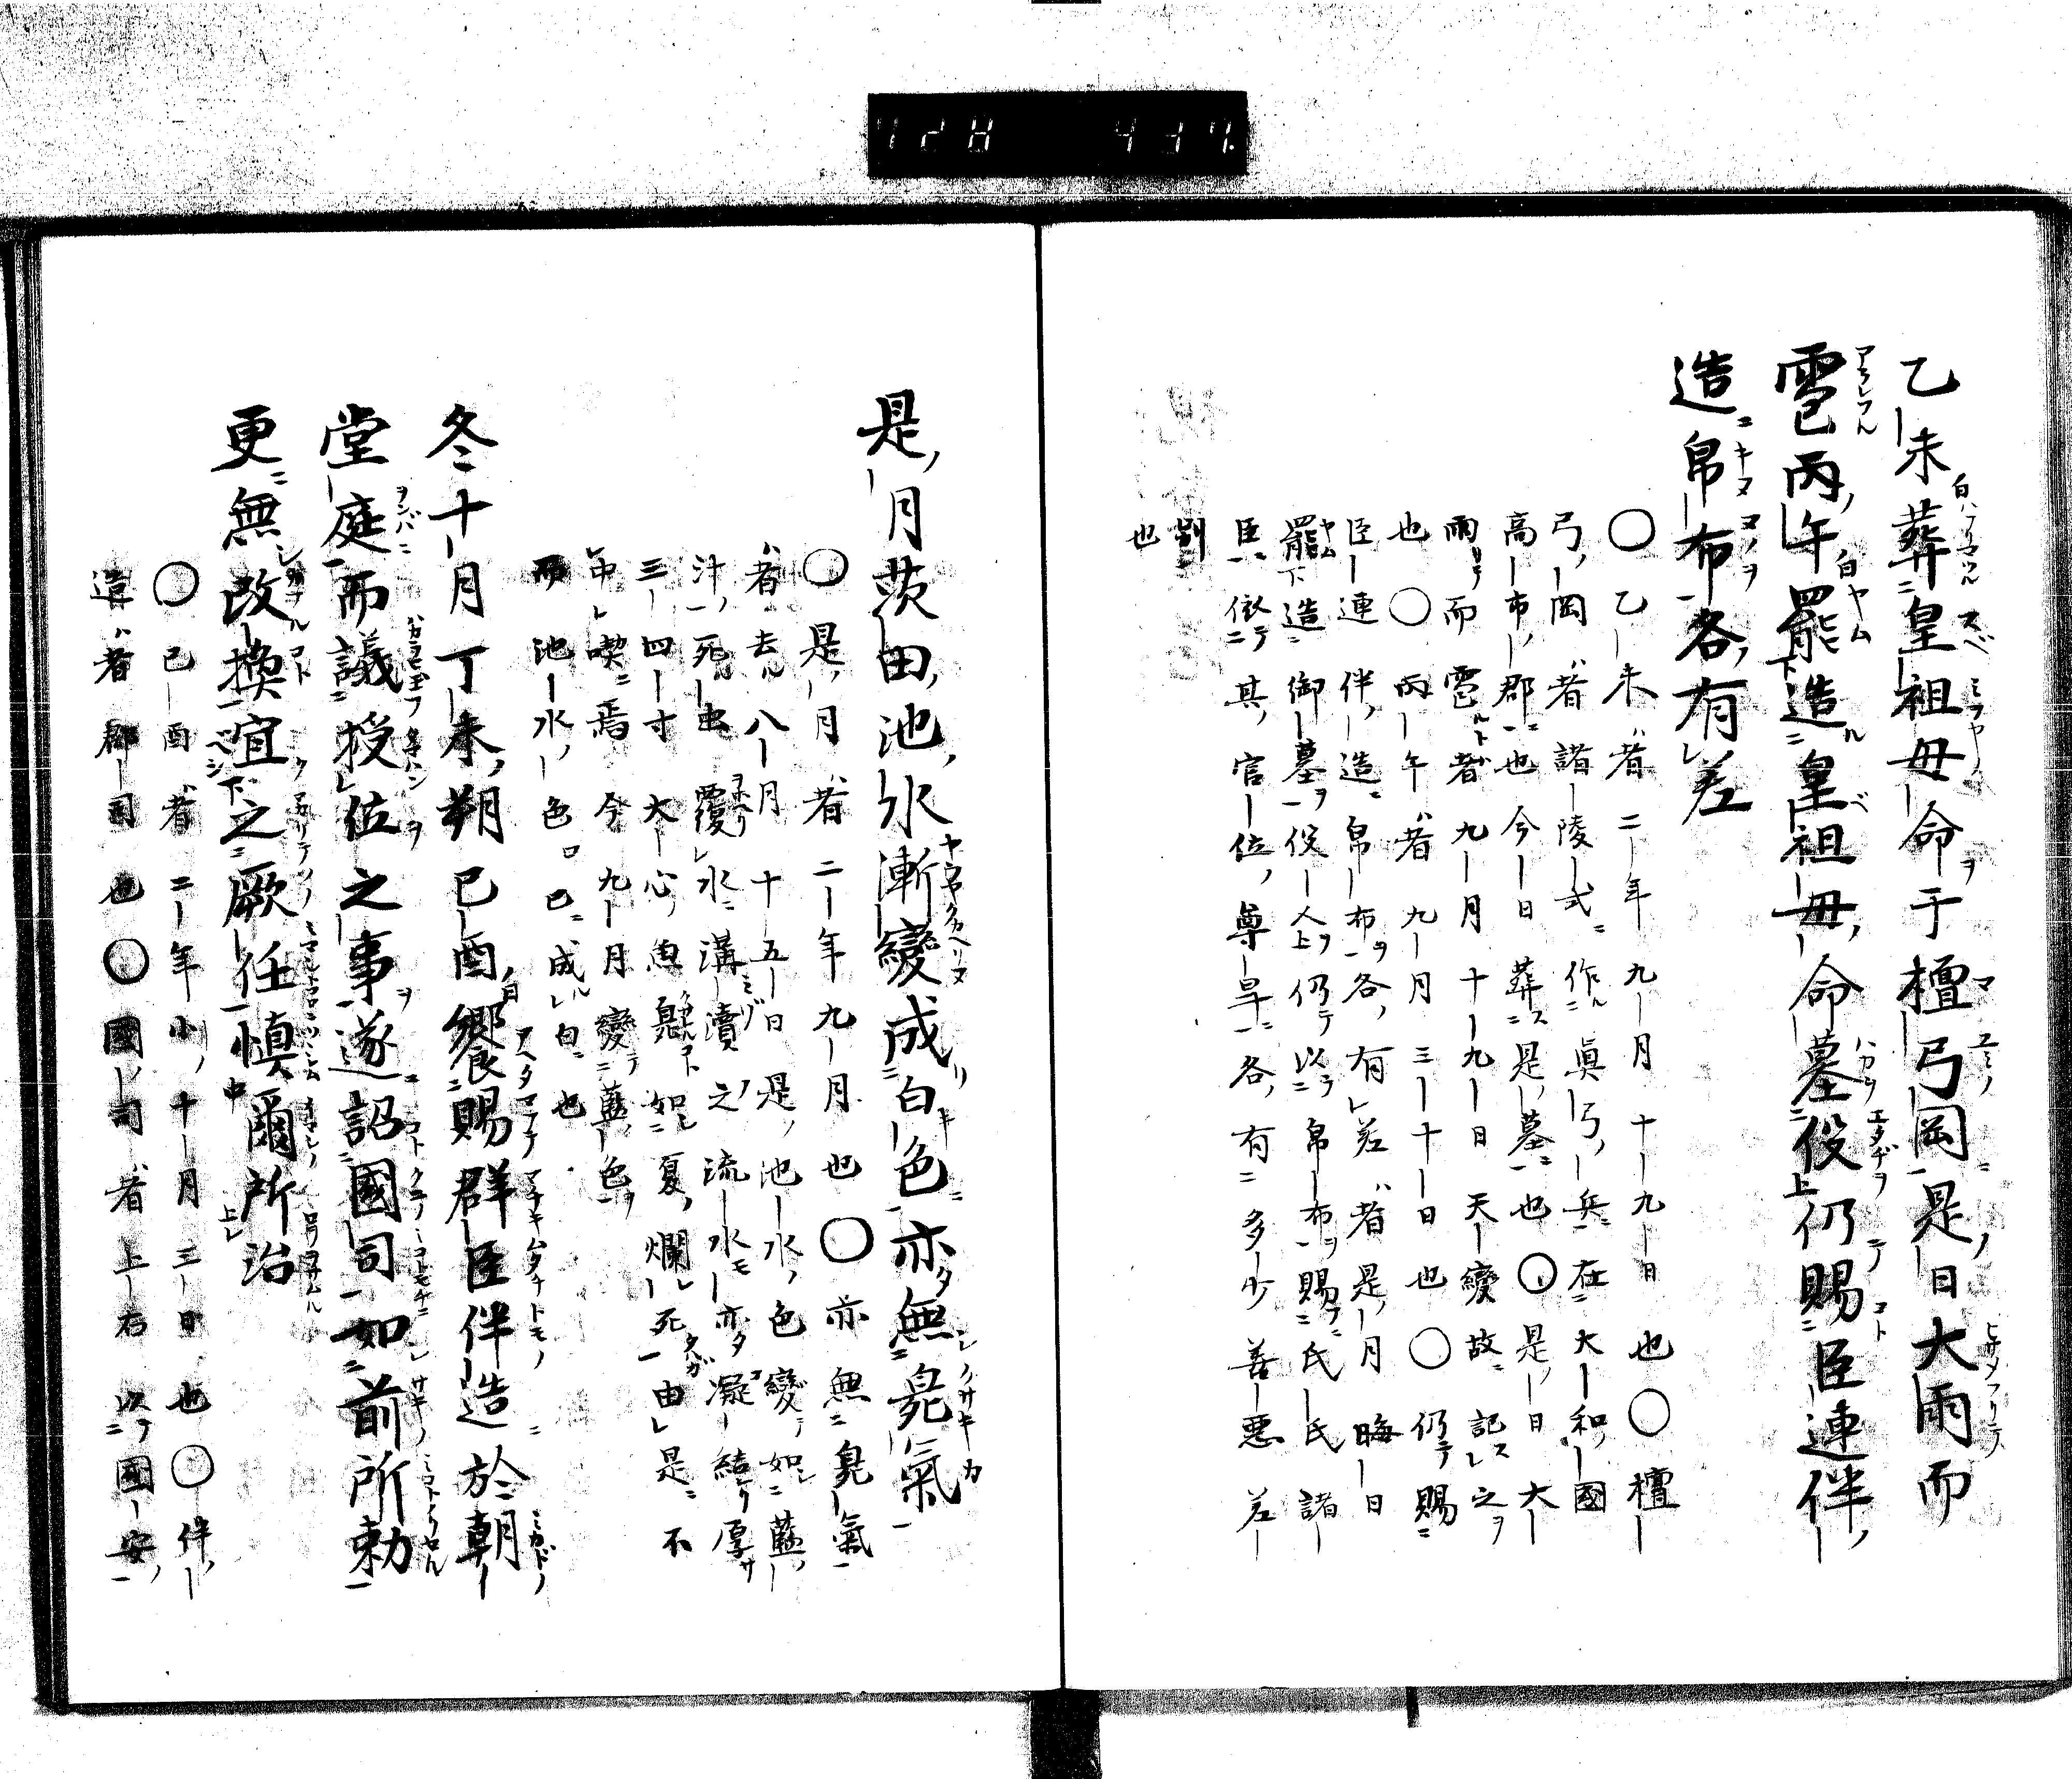 乙未葬皇祖母命于檀弓岡是日大雨而
雹丙午罷造皇祖母命墓役仍賜臣連伴
造帛布各有差
〇乙未者二年九月十九日也〇檀
弓岡者諸陵式作眞弓丘在大和國
高市郡也今日葬是墓也〇是日大
雨而雹者九月十九日天變故記之
也〇丙午者九月三十日也〇仍賜
臣連伴造帛布各有差者是月晦日
罷造御墓役人仍以帛布賜氏氏諸
臣依其官位尊卑各有多少善惡差
別也
是月茨田池水漸變成白色亦無臰氣
〇是月者二年九月也〇亦無臰氣
者去八月十五日是池水色變如藍
汁死虫覆水溝瀆之流水亦凝結厚
三四寸大小魚臰如夏爛死由是不
中喫焉今九月變藍色
而池水色已成白也
冬十月丁未朔己酉饗賜群臣伴造於朝
堂庭而議授位之事遂詔國司如前所勅
更無改換宜之厥任愼爾所治
〇己酉者二年小十月三日也〇伴
造者郡司也〇國司者上古以國安